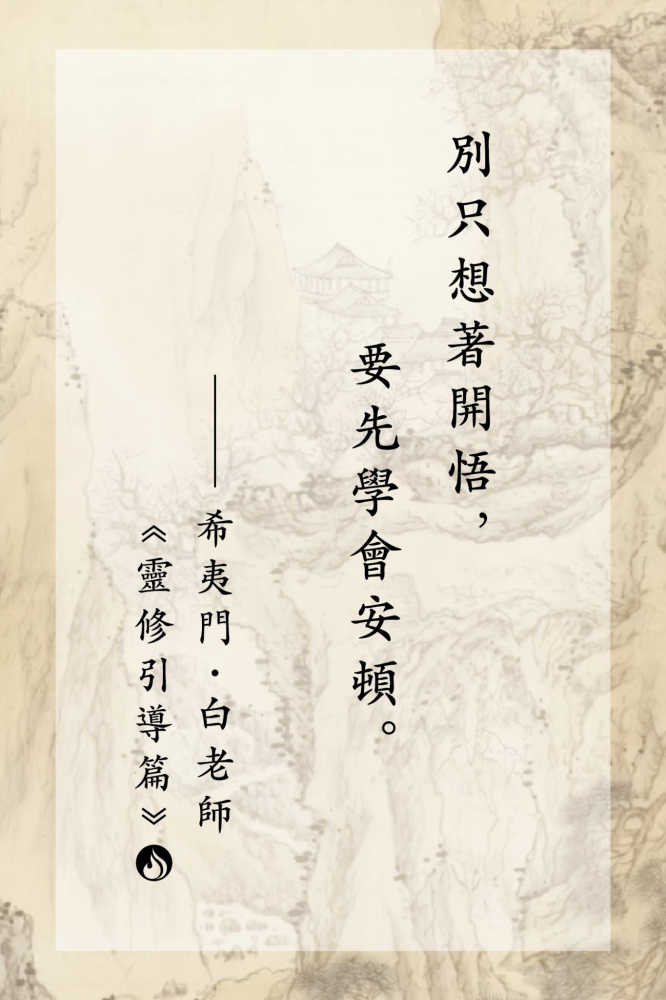 別只想著開悟，
要先學會安頓。
——希夷門·白老師
《靈修引導篇》